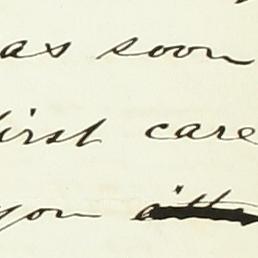 as soon
first care
you